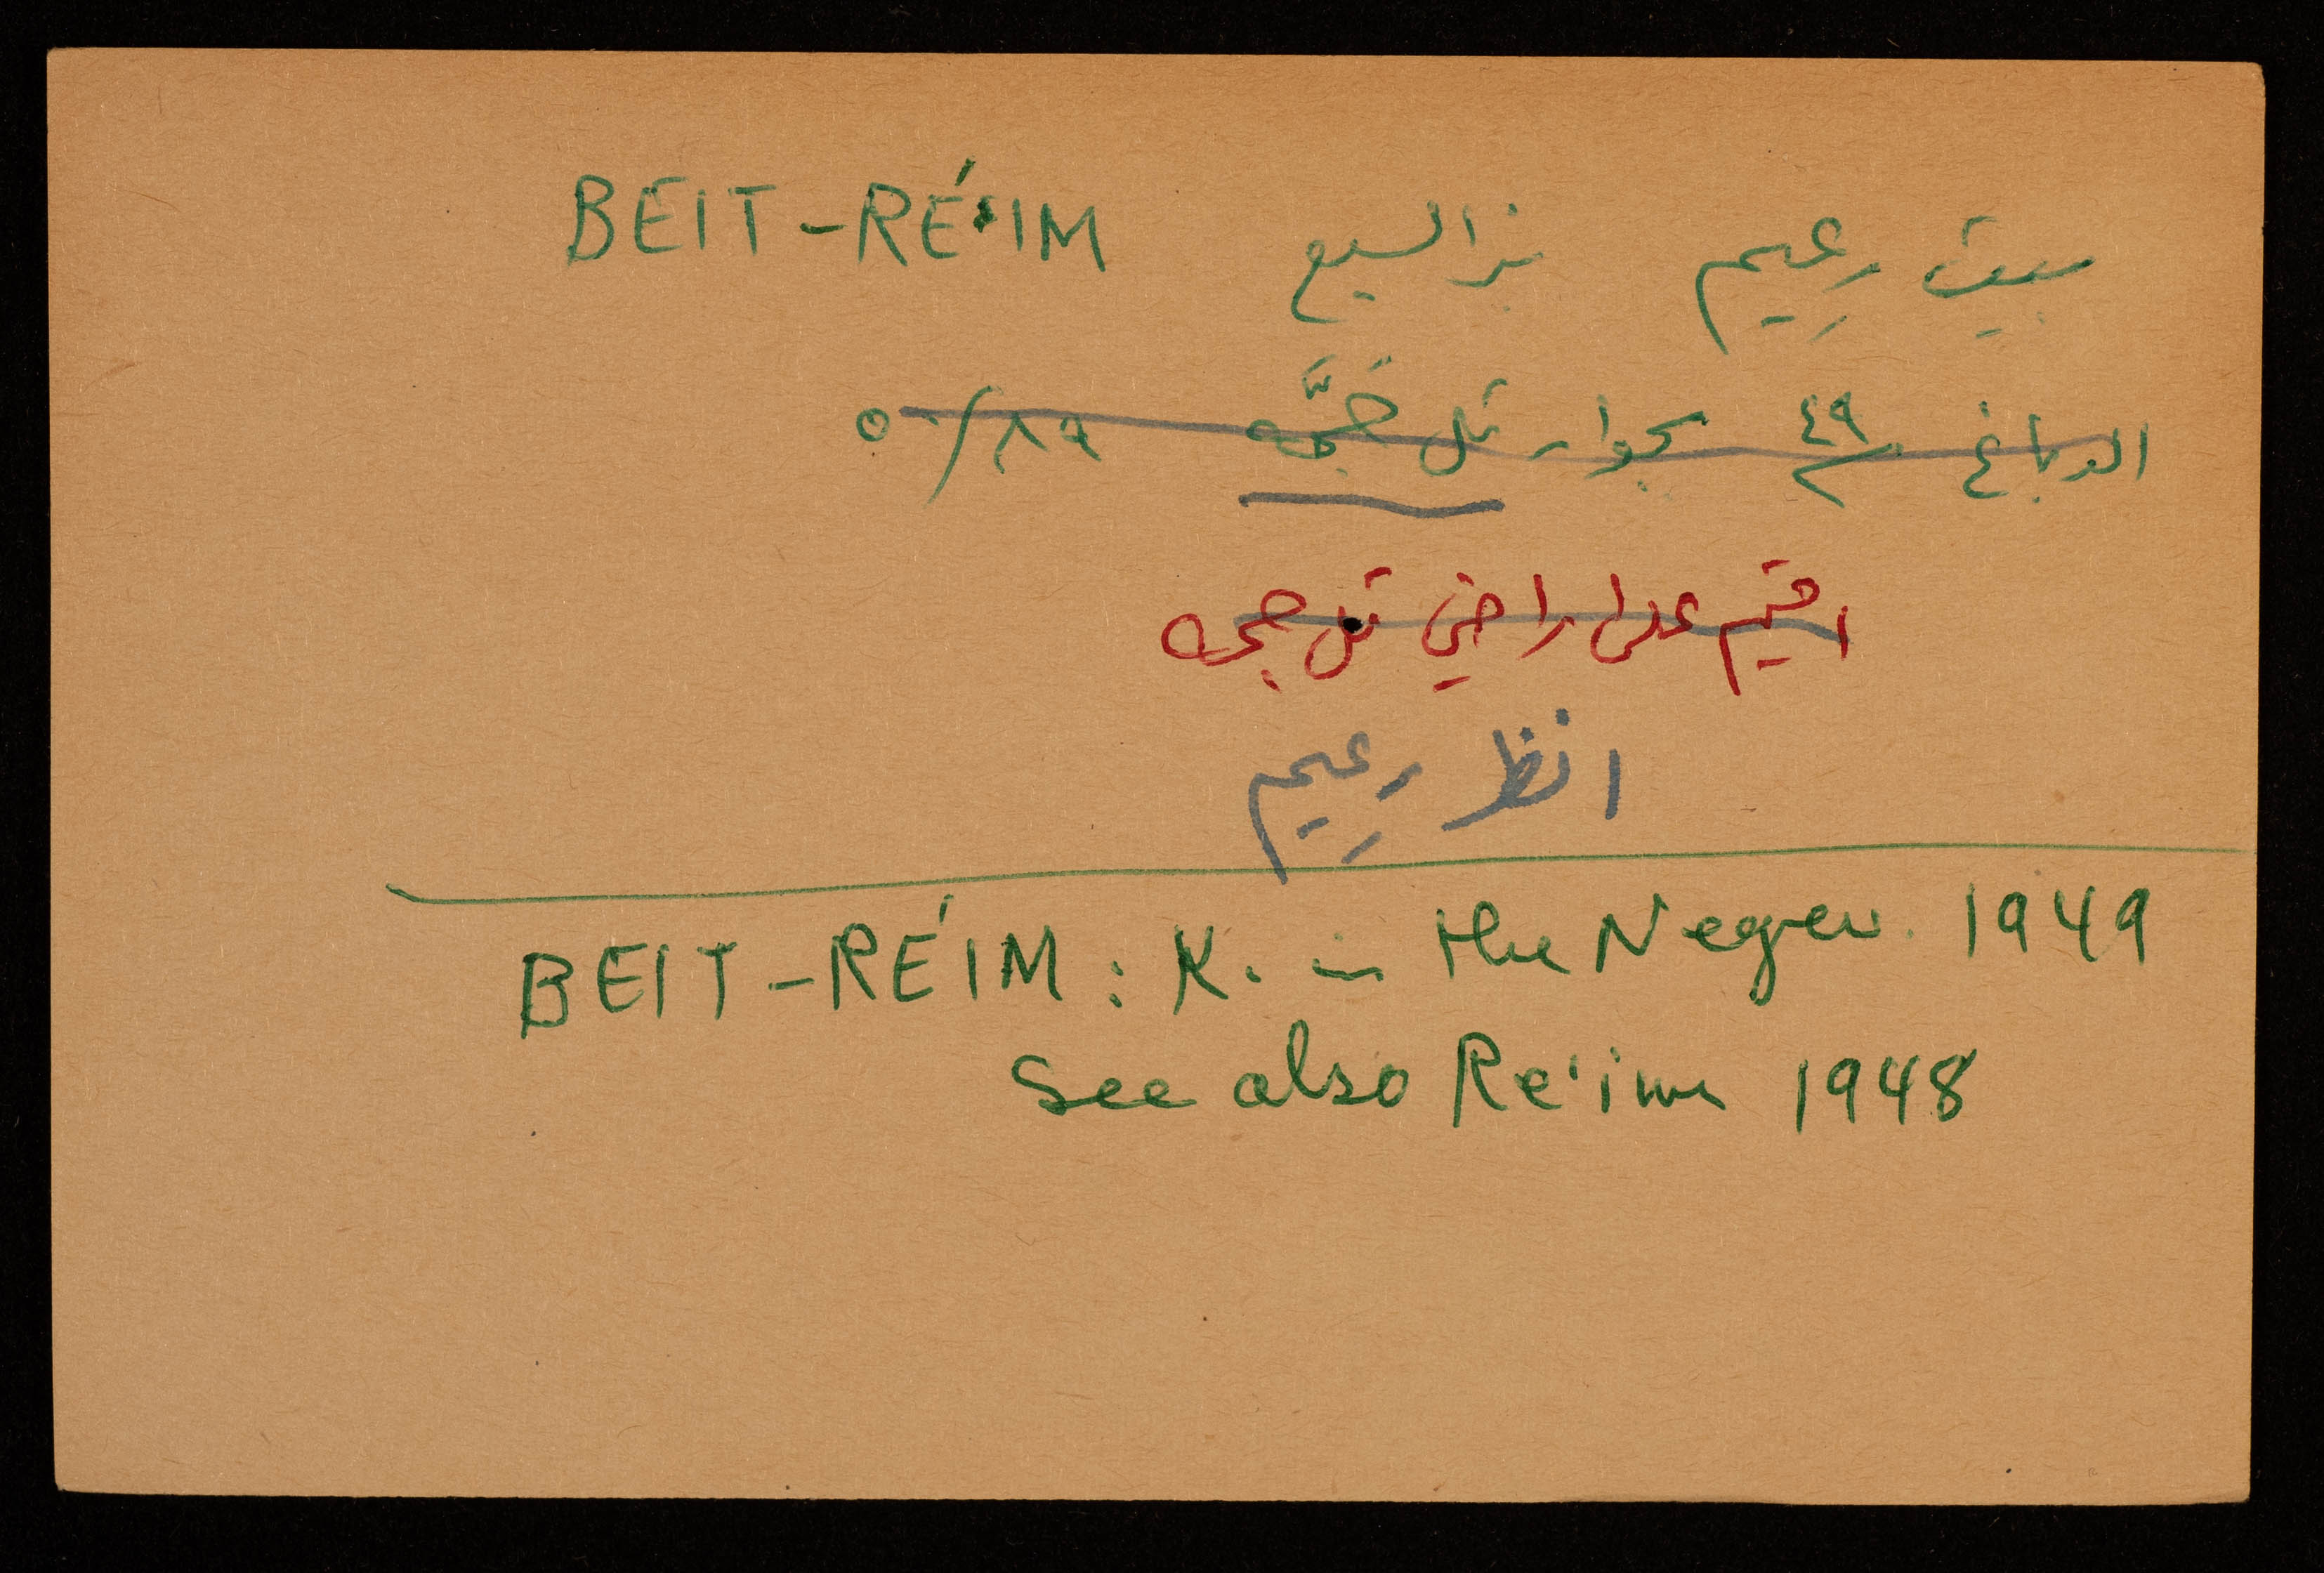 بيت رِعيم بئر السبع BEIT-RÉ'IM
الدباغ ٤٩ بجوار تل جَمَّه ٥٠/٨٩
اقيم على اراضي تل جمه
انظر رِعيم
BEIT-RÉIM: K. in the Negev. 1949
See also Re'im 1948